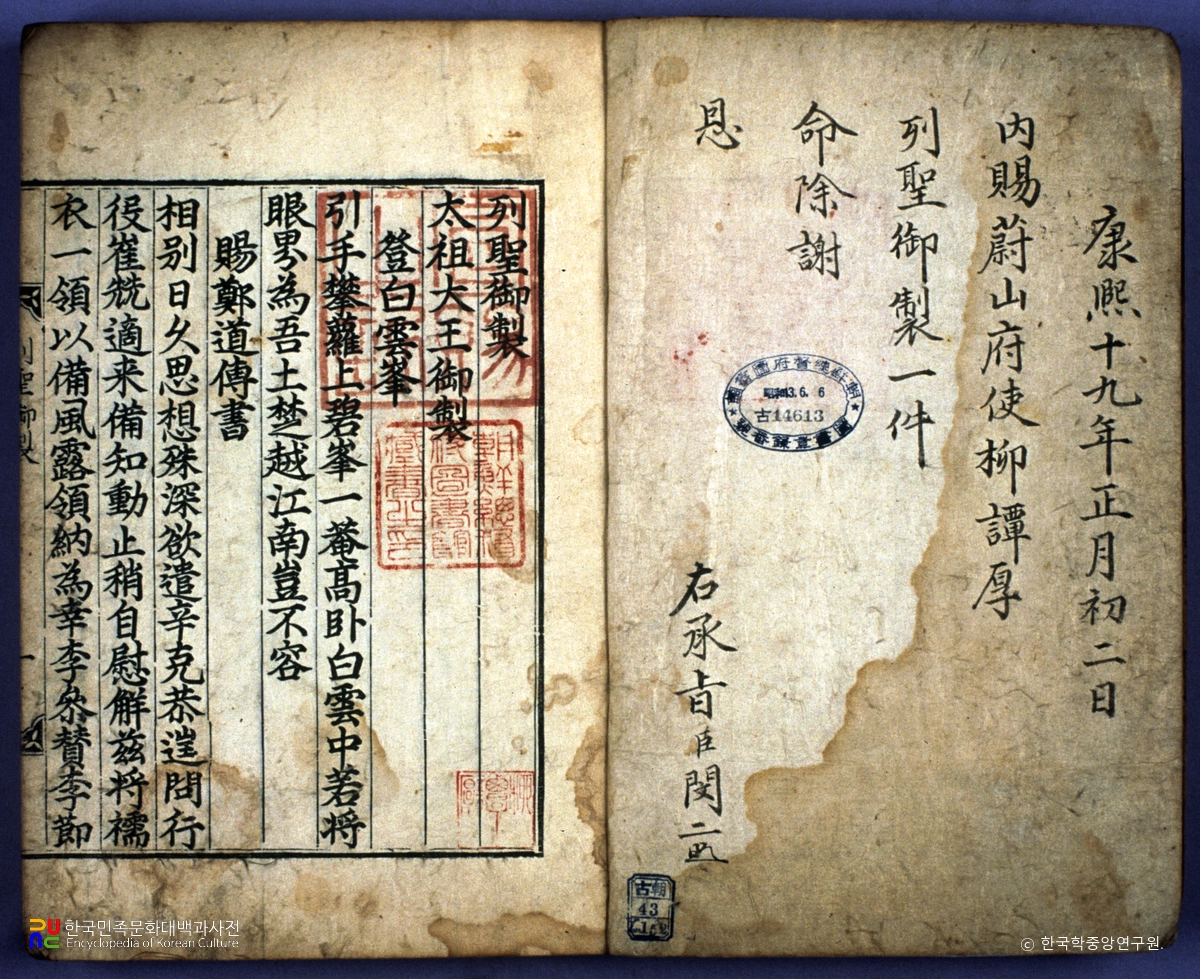 康熙十九年正月初二日
內賜蔚山府使柳譚厚
列聖御製一件
命除謝
恩
右承旨臣閔
昭和13.6.6
古14613
古朝
43
列聖御製
太祖大王御製
登白雲峯
引手攀蘿上碧峯一菴高卧白雲中若將
眼界為吾土楚越江南豈不容
賜鄭道傳書
相別日久思想殊深欲遣辛克恭遑問行
役崔兢適来備知動止稍自慰觧茲將襦
衣一領以備風露領納為幸李叅贊李節
朝鮮總督府圖書館藏書之印
列聖御製
한국민족문화대백과사전
Encyclopedia of Korean Culture
© 한국학중앙연구원.